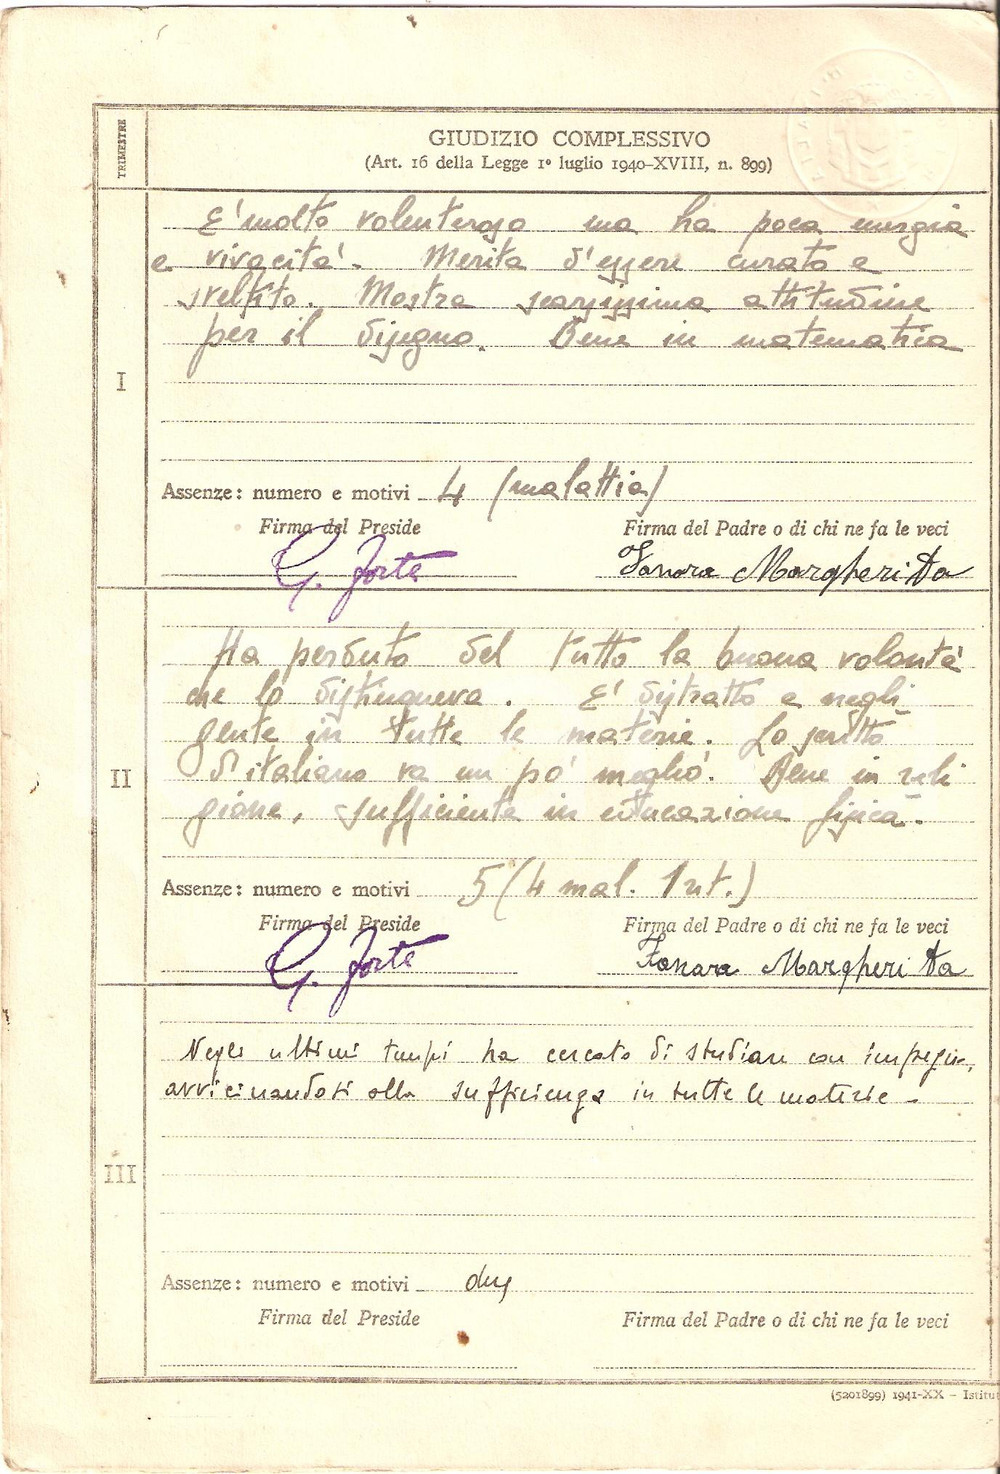 TRIMESTRE
GIUDIZIO COMPLESSIVO
(Art. 16 della Legge 1º luglio 1940-XVIII, n. 899)
I
E' molto volenteroso ma ha poca energia
e vivacità. Merita d'essere curato e
sveltito. Mostra scarsissima attitudine
per il disegno. Bene in matematica
Assenze: numero e motivi 4 (malattia)
Firma del Preside
Firma del Padre o di chi ne fa le veci
G. Forte
Margherita
II
Ha perduto del tutto la buona volontà
che lo distingueva. E' distratto e negli
gente in tutte le materie. Lo scritto
d'italiano va un po' meglio. Bene in reli
gione, sufficiente in educazione fisica.
Assenze: numero e motivi 5 (4 mal. 1 rit.)
Firma del Preside
Firma del Padre o di chi ne fa le veci
G. Forte
Margherita
III
Negli ultimi tempi ha cercato di studiare con impegno,
avvicinandosi alla sufficienza in tutte le materie -
Assenze: numero e motivi due
Firma del Preside
Firma del Padre o di chi ne fa le veci
(5201899) 1941-XX - Istitu